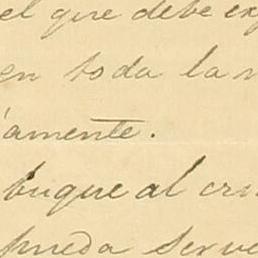 el que debe exp
en toda la n
amente.
buque al cru
pueda serve